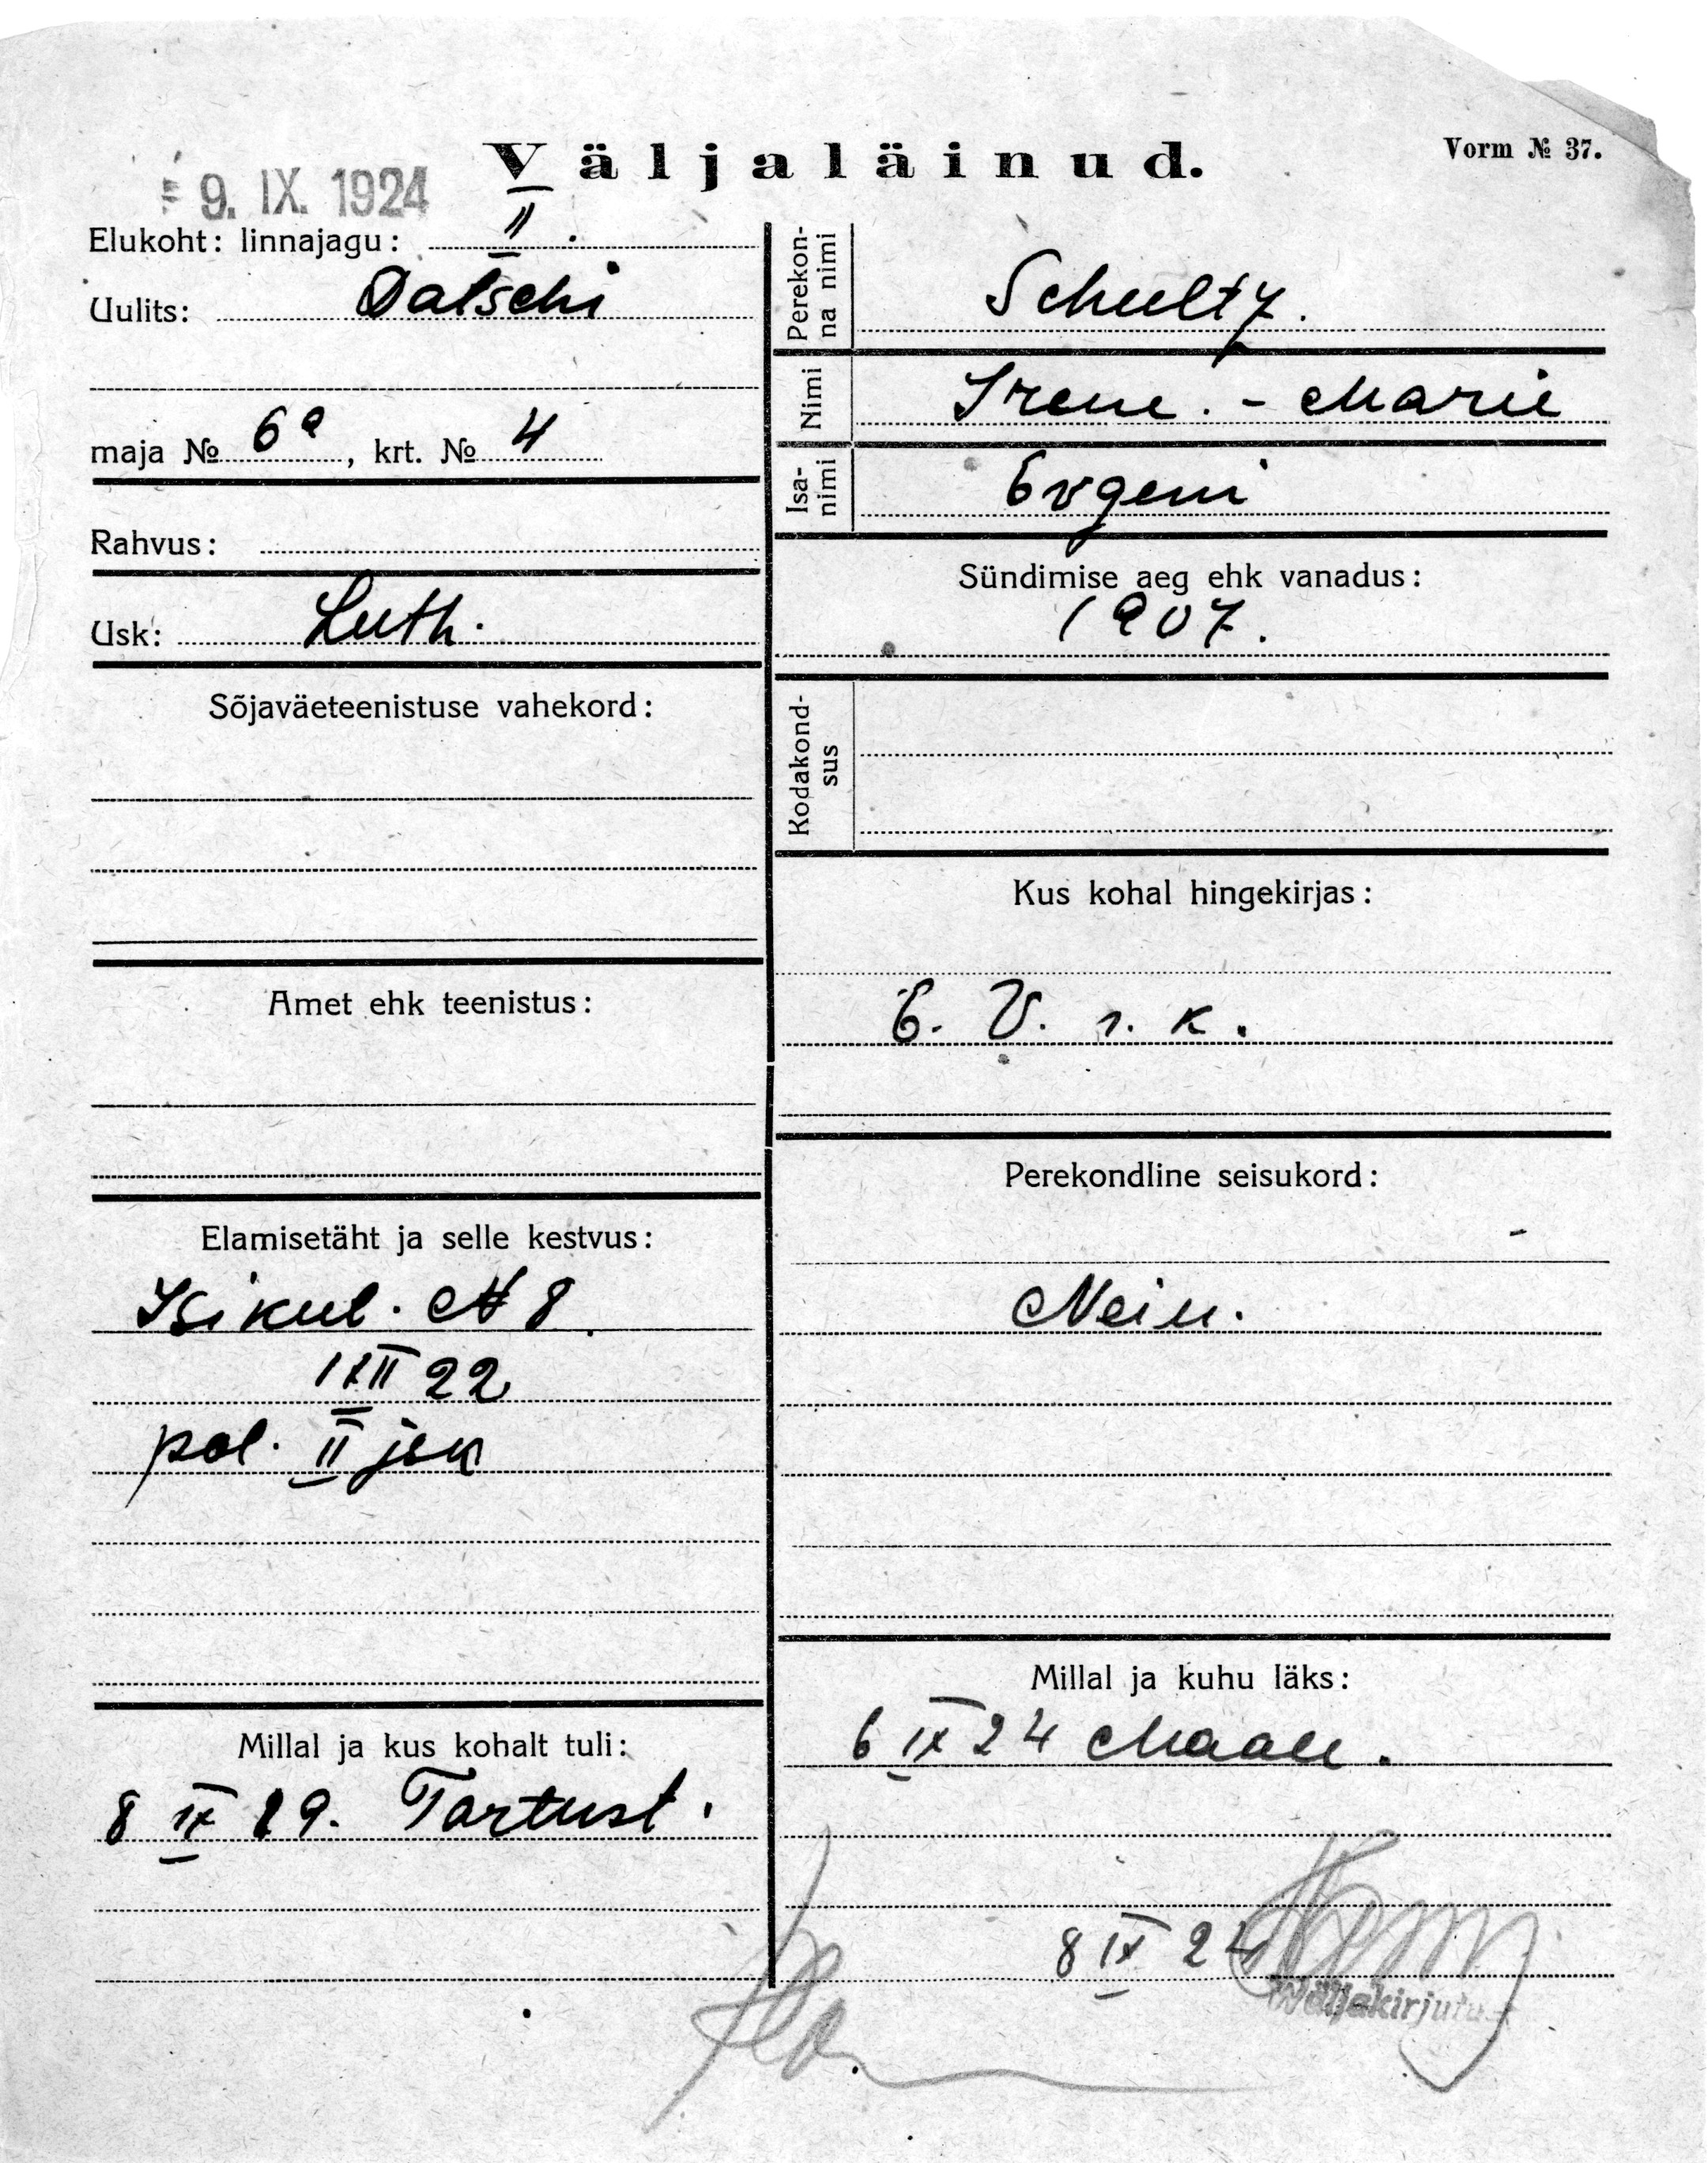 Väljaläinud.
Vorm № 37.
9. IX. 1924
Elukoht: linnajagu: II.
Uulits: Datschi
maja № 6a, krt. № 4
Rahvus:
Usk: Luth.
Sõjaväeteenistuse vahekord:
Amet ehk teenistus:
Elamisetäht ja selle kestvus:
Isikut. № 8
1 XII 22
pol. II jsk
Millal ja kus kohalt tuli:
8 IX 19. Tartust.
Perekon-
na nimi
Schultz.
Nimi
Irene.-Marie
Isa-
nimi
Evgeni
Sündimise aeg ehk vanadus:
1907.
Kodakond-
sus
Kus kohal hingekirjas:
E. V. r. k.
Perekondline seisukord:
Neiu.
Millal ja kuhu läks:
6 IX 24 Maale.
8 IX 24